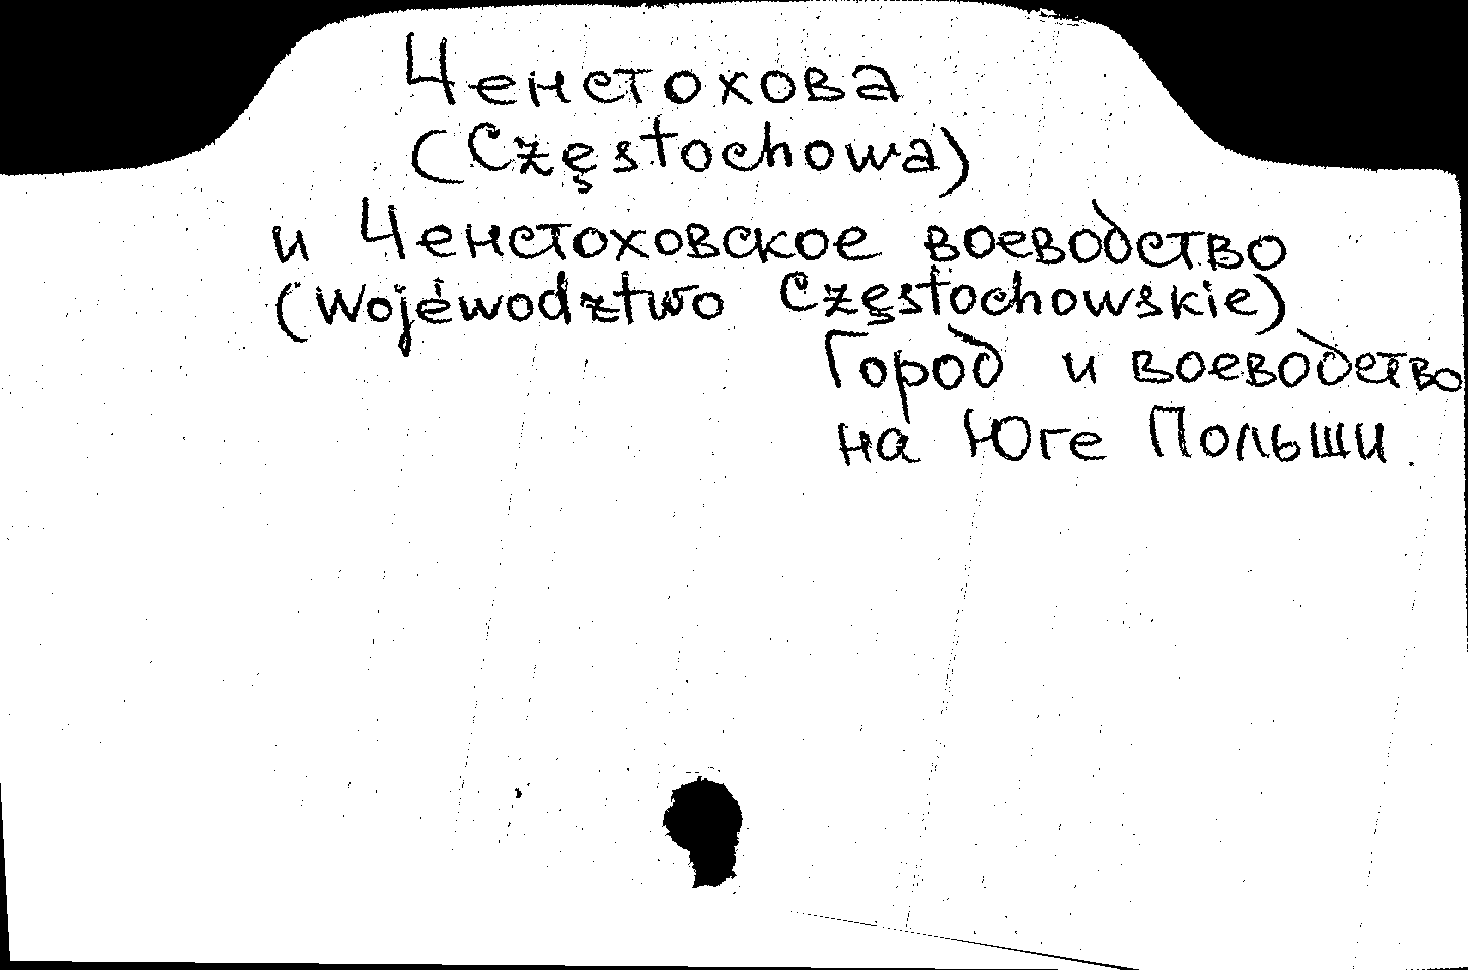 Ченстохова
(Częstochowa)
и Ченстоховское воеводство
(Wojéwodztwo Częstochowskie)
Город и воеводство
на Юге Польши.